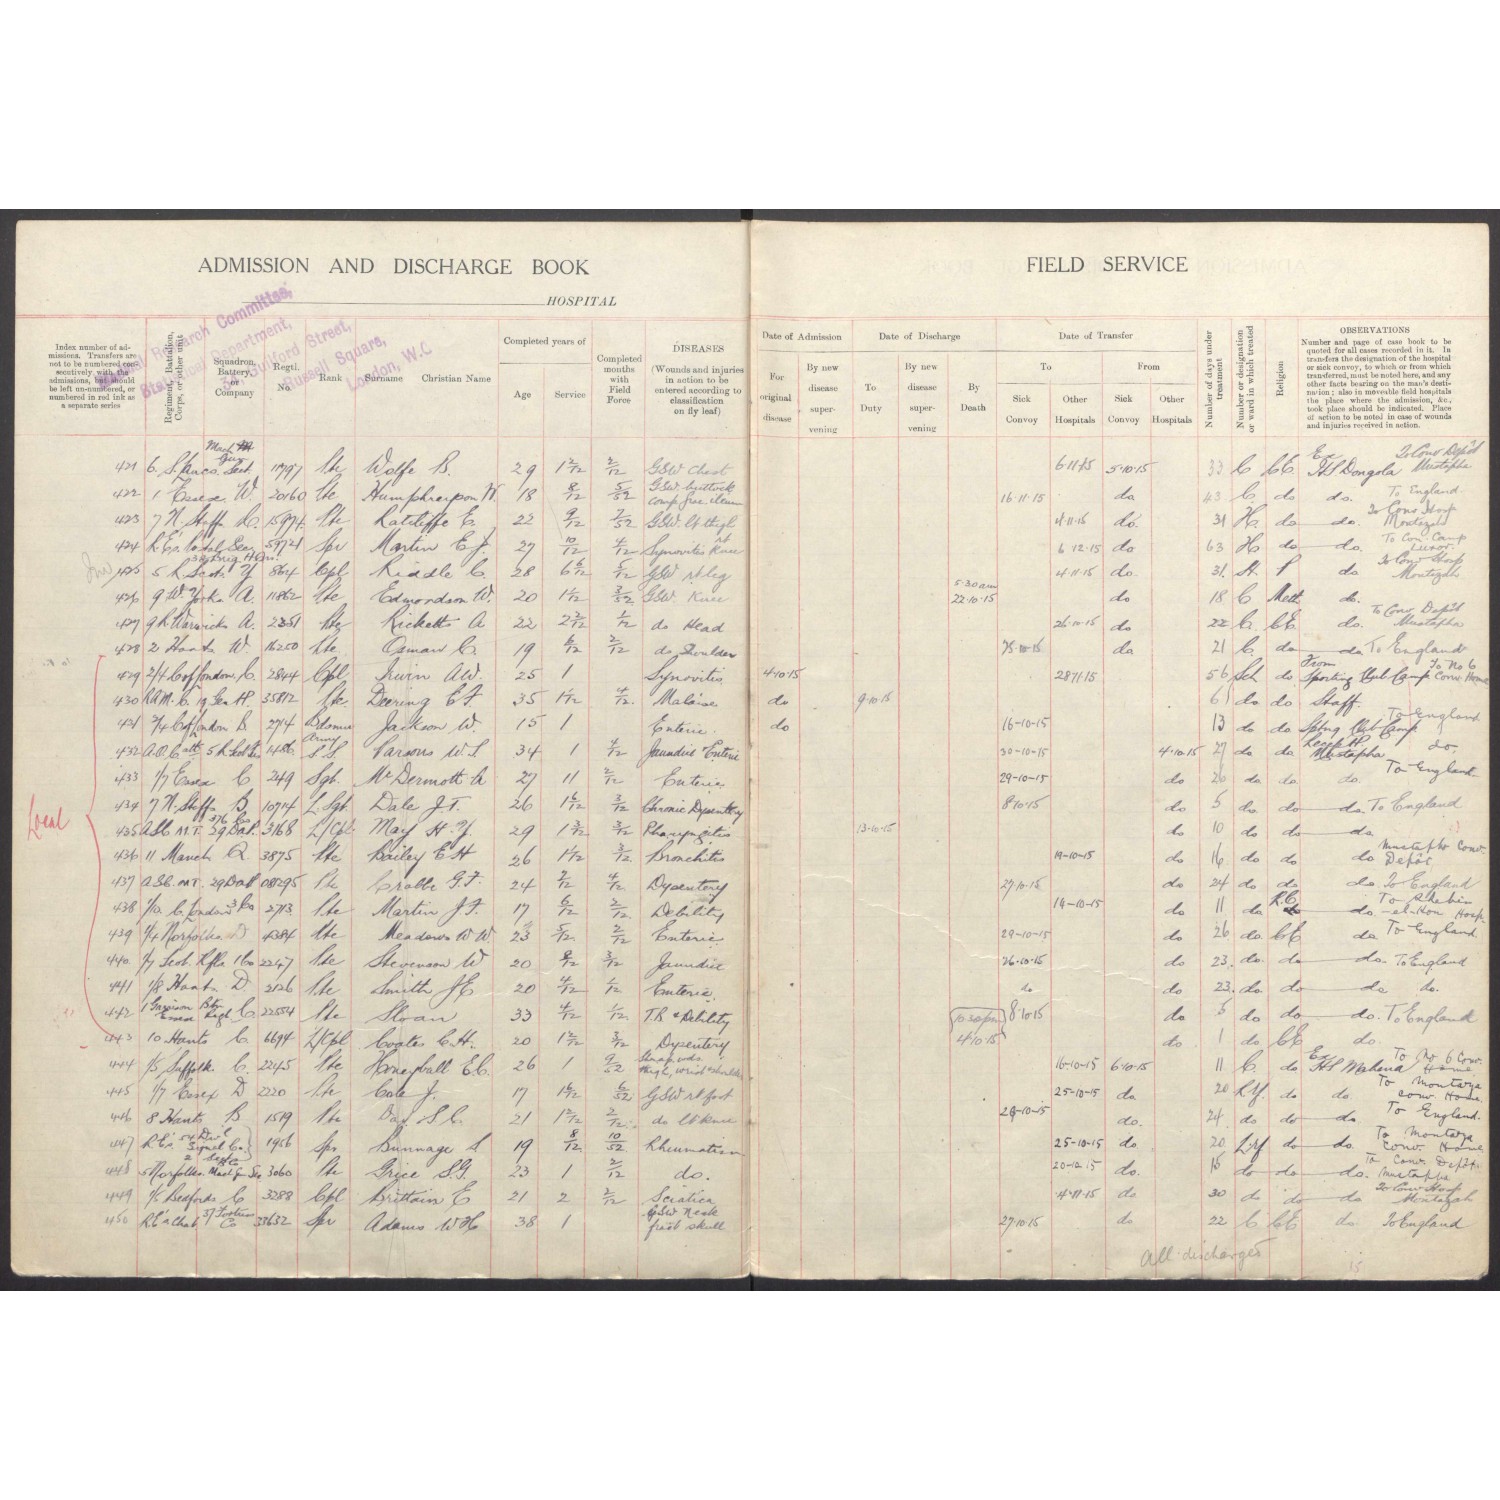 ADMISSION AND DISCHARGE BOOK
HOSPITAL
FIELD SERVICE
Research Committee,
Statistical Department,
Guilford Street,
Russell Square,
London, W.C
Index number of admissions. Transfers are not to be numbered consecutively with the admissions, but should be left un-numbered, or numbered in red ink as a separate series
Regiment, Battalion, Corps, or other unit
Squadron, Battery, or Company
Regtl. No.
Rank
Surname
Christian Name
Completed years of
Age
Service
Completed months with Field Force
DISEASES
(Wounds and injuries in action to be entered according to classification on fly leaf)
Date of Admission
For original disease
By new disease supervening
Date of Discharge
To Duty
By new disease supervening
By Death
Date of Transfer
To
Sick Convoy
Other Hospitals
From
Sick Convoy
Other Hospitals
Number of days under treatment
Number or designation of ward in which treated
Religion
OBSERVATIONS
Number and page of case book to be quoted for all cases recorded in it. In transfers the designation of the hospital or sick convoy, to which or from which transferred, must be noted here, and any other facts bearing on the man's destination; also in moveable field hospitals the place where the admission, &c., took place should be indicated. Place of action to be noted in case of wounds and injuries received in action.
421 6. S. Lancs. Mach Gun Sect. 11797 Pte Wolfe B. 29 1 2/12 2/12 GSW Chest 6·11·15 5·10·15 33 C CE Ex HS Dongola To Conv Depôt Mustapha
422 1 Essex W. 20160 Pte Humphreyson W. 18 8/12 5/52 GSW. buttock comp frac ileum 16·11·15 do 43 C. do do. To England
423 7 N. Staff 15974 Pte Ratcliffe E. 22 9/12 7/52 GSW. lt thigh 4·11·15 do. 31 H. do do. To Conv Hosp Montazah
424 R.E's. Postal Sec 59721 Spr Martin E.J. 27 10/12 4/12 Synovitis rt Knee 6·12·15 do 63 H do do. To Con. Camp Luxor.
425 5 R. Scots Y 864 Cpl Riddle C. 28 6 6/12 5/12 GSW rt leg 4·11·15 do. 31. H. P do To Conv Hosp Montazah
426 9 W. Yorks A. 11862 Pte Edmondson W. 20 1 1/12 3/52 GSW. Knee 5·30 am 22·10·15 do 18. C Meth. do.
427 9 R. Warwicks A. 2351 Pte Ricketts A 22 2 2/12 1/12 do Head 26·10·15 do 22 C. CE do. To Conv Depôt Mustapha
428 2 Hants W. 16250 Pte Osman C. 19 6/12 2/12 do, Shoulder 25·10·15 do 21 C. do do To England
Local
429 2/4 C of London, C. 2844 Cpl. Irwin A.W. 25 1 Synovitis 4·10·15 28·11·15 56 Sch do From Sporting Club Camp To No 6 Conv Home
430 RAM.C. 19 Gen H. 35812 Pte. Deering E.F. 35 1 1/12 4/12. Malaise do 9·10·15 6 do do Staff.
431 2/4 C of London B 2714 Jackson W. 15 1 Enteric. do 16-10-15 13 do do Sptng Club Camp To England
432 A.O.C att 5 R. Scots 1486 S.S. Parsons W.S 34 1 4/12 Jaundice Enteric 30-10-15 4·10·15 27 do do Mustapha do.
433 1/7 Essex C 249 Sgt. McDermott A 27 11 2/12 Enteric. 29-10-15 do 26 do. do. do. To England
434 7 N. Staffs B. 10714 L. Sgt. Dale J.T. 26 1 6/12 3/12 Chronic Dysentery 8·10·15 do 5 do. do do. To England
435 ASC M.T. 376 Co 29 Dvl. 3168 L/Cpl May H.Y. 29 1 3/12 3/12 Pharyngitis 13·10·15 do 10 do do do
436 11 Manch Q. 3875 Pte Bailey E H 26 1 1/12 3/12 Bronchitis 19-10-15 do 16 do do do Mustapha Conv. Depôt
437 ASC. M.T. 29 Dvl 081295 Pte Crabbe G.F. 24 2/12 4/12 Dysentery 27·10·15 do 24 do do do To England
438 1/10 C. London 3 Co 2713. Pte Martin J.F. 17 6/12 2/12 Debility 14-10-15 do 11 do R.C. do. To -el-Kon Hosp.
439 1/4 Norfolks D 4384 Pte Meadows W W. 23 5/12. 2/12 Enteric 29-10-15 do 26 do. CE do To England.
440 1/7 Scot. Rfls 1 Co 2247 Pte Stevenson W 20 8/12 3/12 Jaundice 26·10·15 do 23. do. do do. To England
441 1/8 Hants D 2126 Pte Smith J.E. 20 4/12 1/12 Enteric. do do 23. do. do do do.
442 1 Garrison Btn Essex Regt C. 22554 Pte Sloan 33 4/12 1/12 T.B & Debility 8·10·15 do 5 do. do do. To England
443 10 Hants C. 6694 L/Cpl Coates C.H. 20 1 2/12 3/12 Dysentery 10·30 pm 4·10·15 do 1 do. CE do.
444 1/5 Suffolk C. 2245 Pte Honeyball E.C. 26 1 9/52 Shrap. wds. thigh, wrist & shoulder 16-10-15 6·10·15 11 C. do Ex HS Mahena To No 6 Conv. Home
445 1/7 Essex D 2220 Pte Cole J. 17 1 6/12 6/52 GSW rt foot 25-10-15 do 20 do do. To Montaza conv. Home
446 8 Hants B 1519 Pte Day S.C. 21 1 2/12 2/12 do lt knee 28-10-15 do. 24. do. do do. To England.
447 R.E's. 54 Div. Signal Co. 2 Sectn 1956 Spr Bunnage S 19 8/12 10/52 Rheumatism 25-10-15 do 20. do do. To Montaza Conv. Home
448 5 Norfolks. Mach Gun Sec 3060 Pte Grice S.G. 23 1 2/12 do. 20-12-15 do. 15 do do do. To Conv. Depôt. Mustapha
449 1/5 Bedfords C 3288 Cpl Brittain E 21 2 2/12 Sciatica 4·11·15 do 30 do do do To Conv Hosp Montazah
450 R.E's Chat 37 Fortress Co 33632 Spr Adams W H 38 1 GSW Neck fract skull 27·10·15 do 22 C CE do. To England
All discharged
15